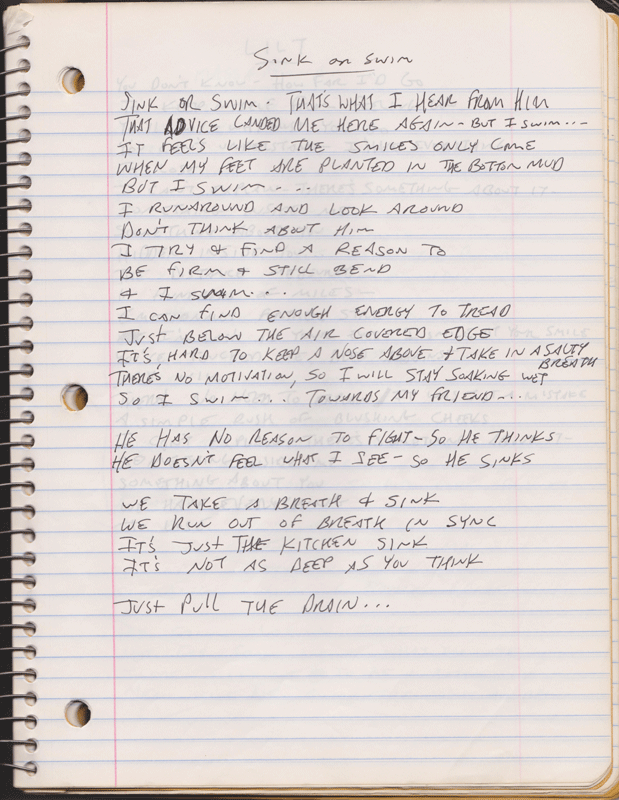 SINK OR SWIM
SINK OR SWIM - THAT'S WHAT I HEAR FROM HIM
THAT ADVICE LANDED ME HERE AGAIN - BUT I SWIM...
IT FEELS LIKE THE SMILES ONLY COME
WHEN MY FEET ARE PLANTED IN THE BOTTOM MUD
BUT I SWIM....
I RUNAROUND AND LOOK AROUND
DON'T THINK ABOUT HIM
I TRY & FIND A REASON TO
BE FIRM & STILL BEND
& I SWIM...
I CAN FIND ENOUGH ENERGY TO TREAD
JUST BELOW THE AIR COVERED EDGE
IT'S HARD TO KEEP A NOSE ABOVE & TAKE IN A SALTY
BREATH
THERE'S NO MOTIVATION, SO I WILL STAY SOAKING WET
SO I SWIM... TOWARDS MY FRIEND...
HE HAS NO REASON TO FIGHT - SO HE THINKS
HE DOESN'T FEEL WHAT I SEE - SO HE SINKS
WE TAKE A BREATH & SINK
WE RUN OUT OF BREATH IN SYNC
IT'S JUST THE KITCHEN SINK
IT'S NOT AS DEEP AS YOU THINK
JUST PULL THE DRAIN...